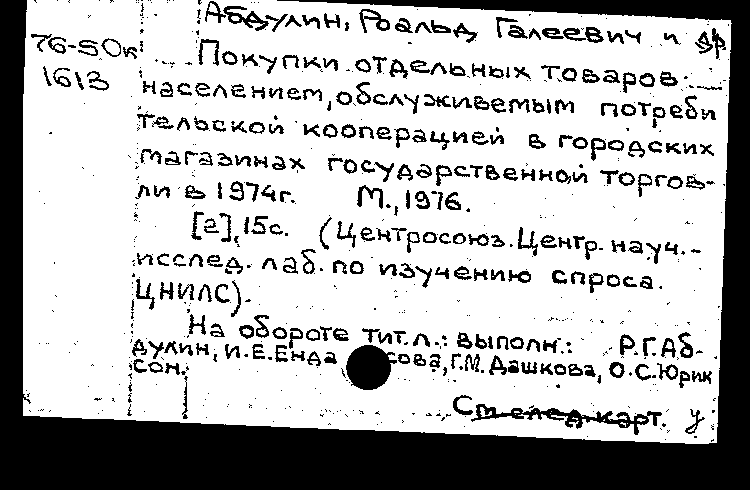 Абдулин, Роальд Галеевич и др
76-50к
1613
Покупки отдельных товаров
населением, обслуживемым потреби
тельской кооперацией в городских
магазинах государственной торгов-
ли в 1974г. М., 1976.
[2], 15с. (Центросоюз. Центр. науч.-
исслед. лаб. по изучению спроса.
ЦНИЛС).
На обороте тит. л.: выполн.: Р.Г. Аб-
дулин, И.Е. Енда сова, Г.М. Дашкова, О.С. Юрик
сон.
См след карт. У